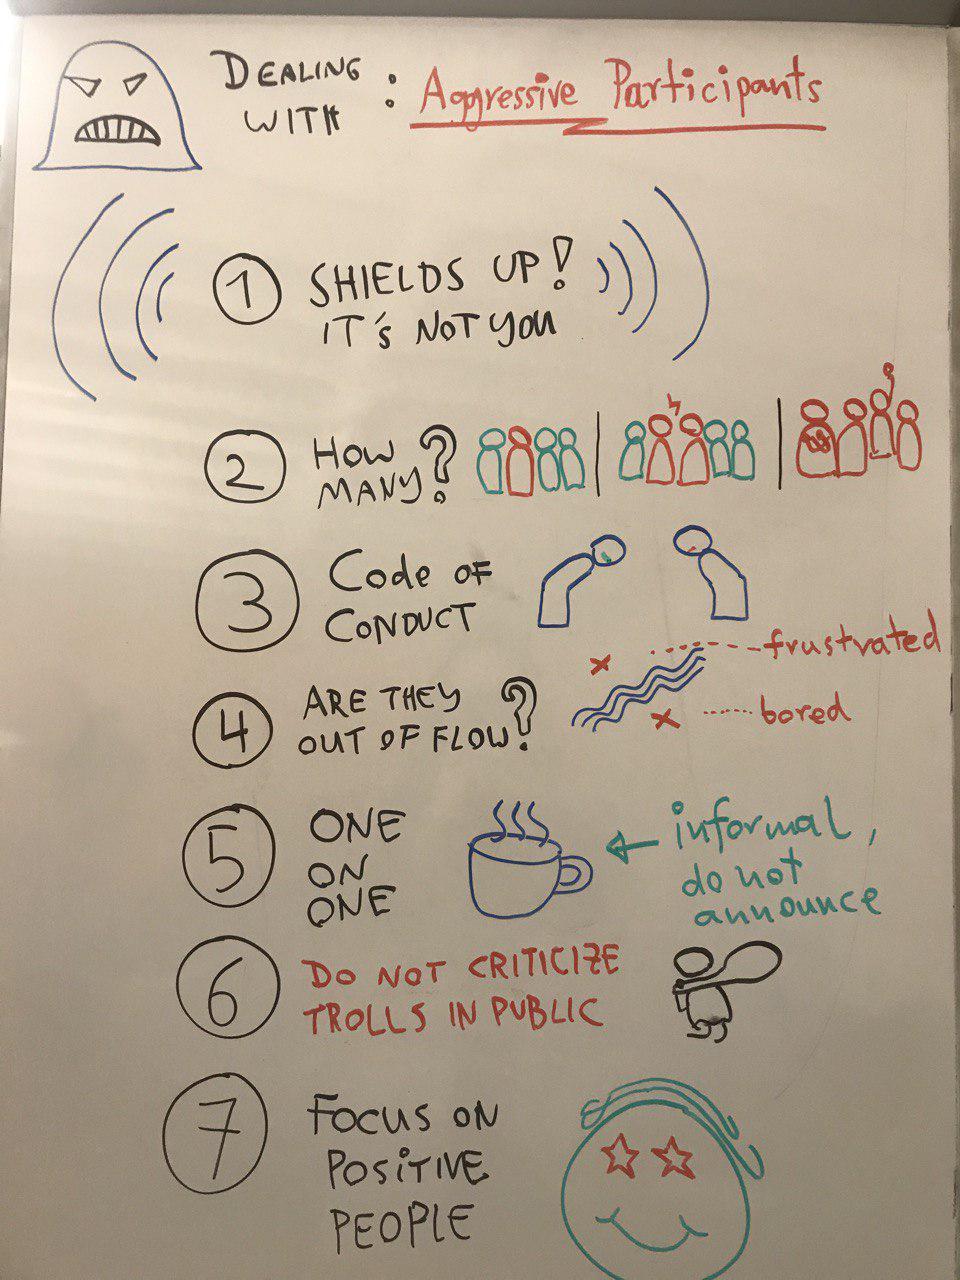 DEALING
WITH : Aggressive Participants
1 SHIELDS UP!
IT'S NOT YOU
2 HOW
MANY?
3 Code OF
CONDUCT
frustrated
4 ARE THEY
OUT OF FLOW?
bored
5 ONE
ON
ONE
informal,
do not
announce
6 DO NOT CRITICIZE
TROLLS IN PUBLIC
7 FOCUS ON
POSITIVE
PEOPLE